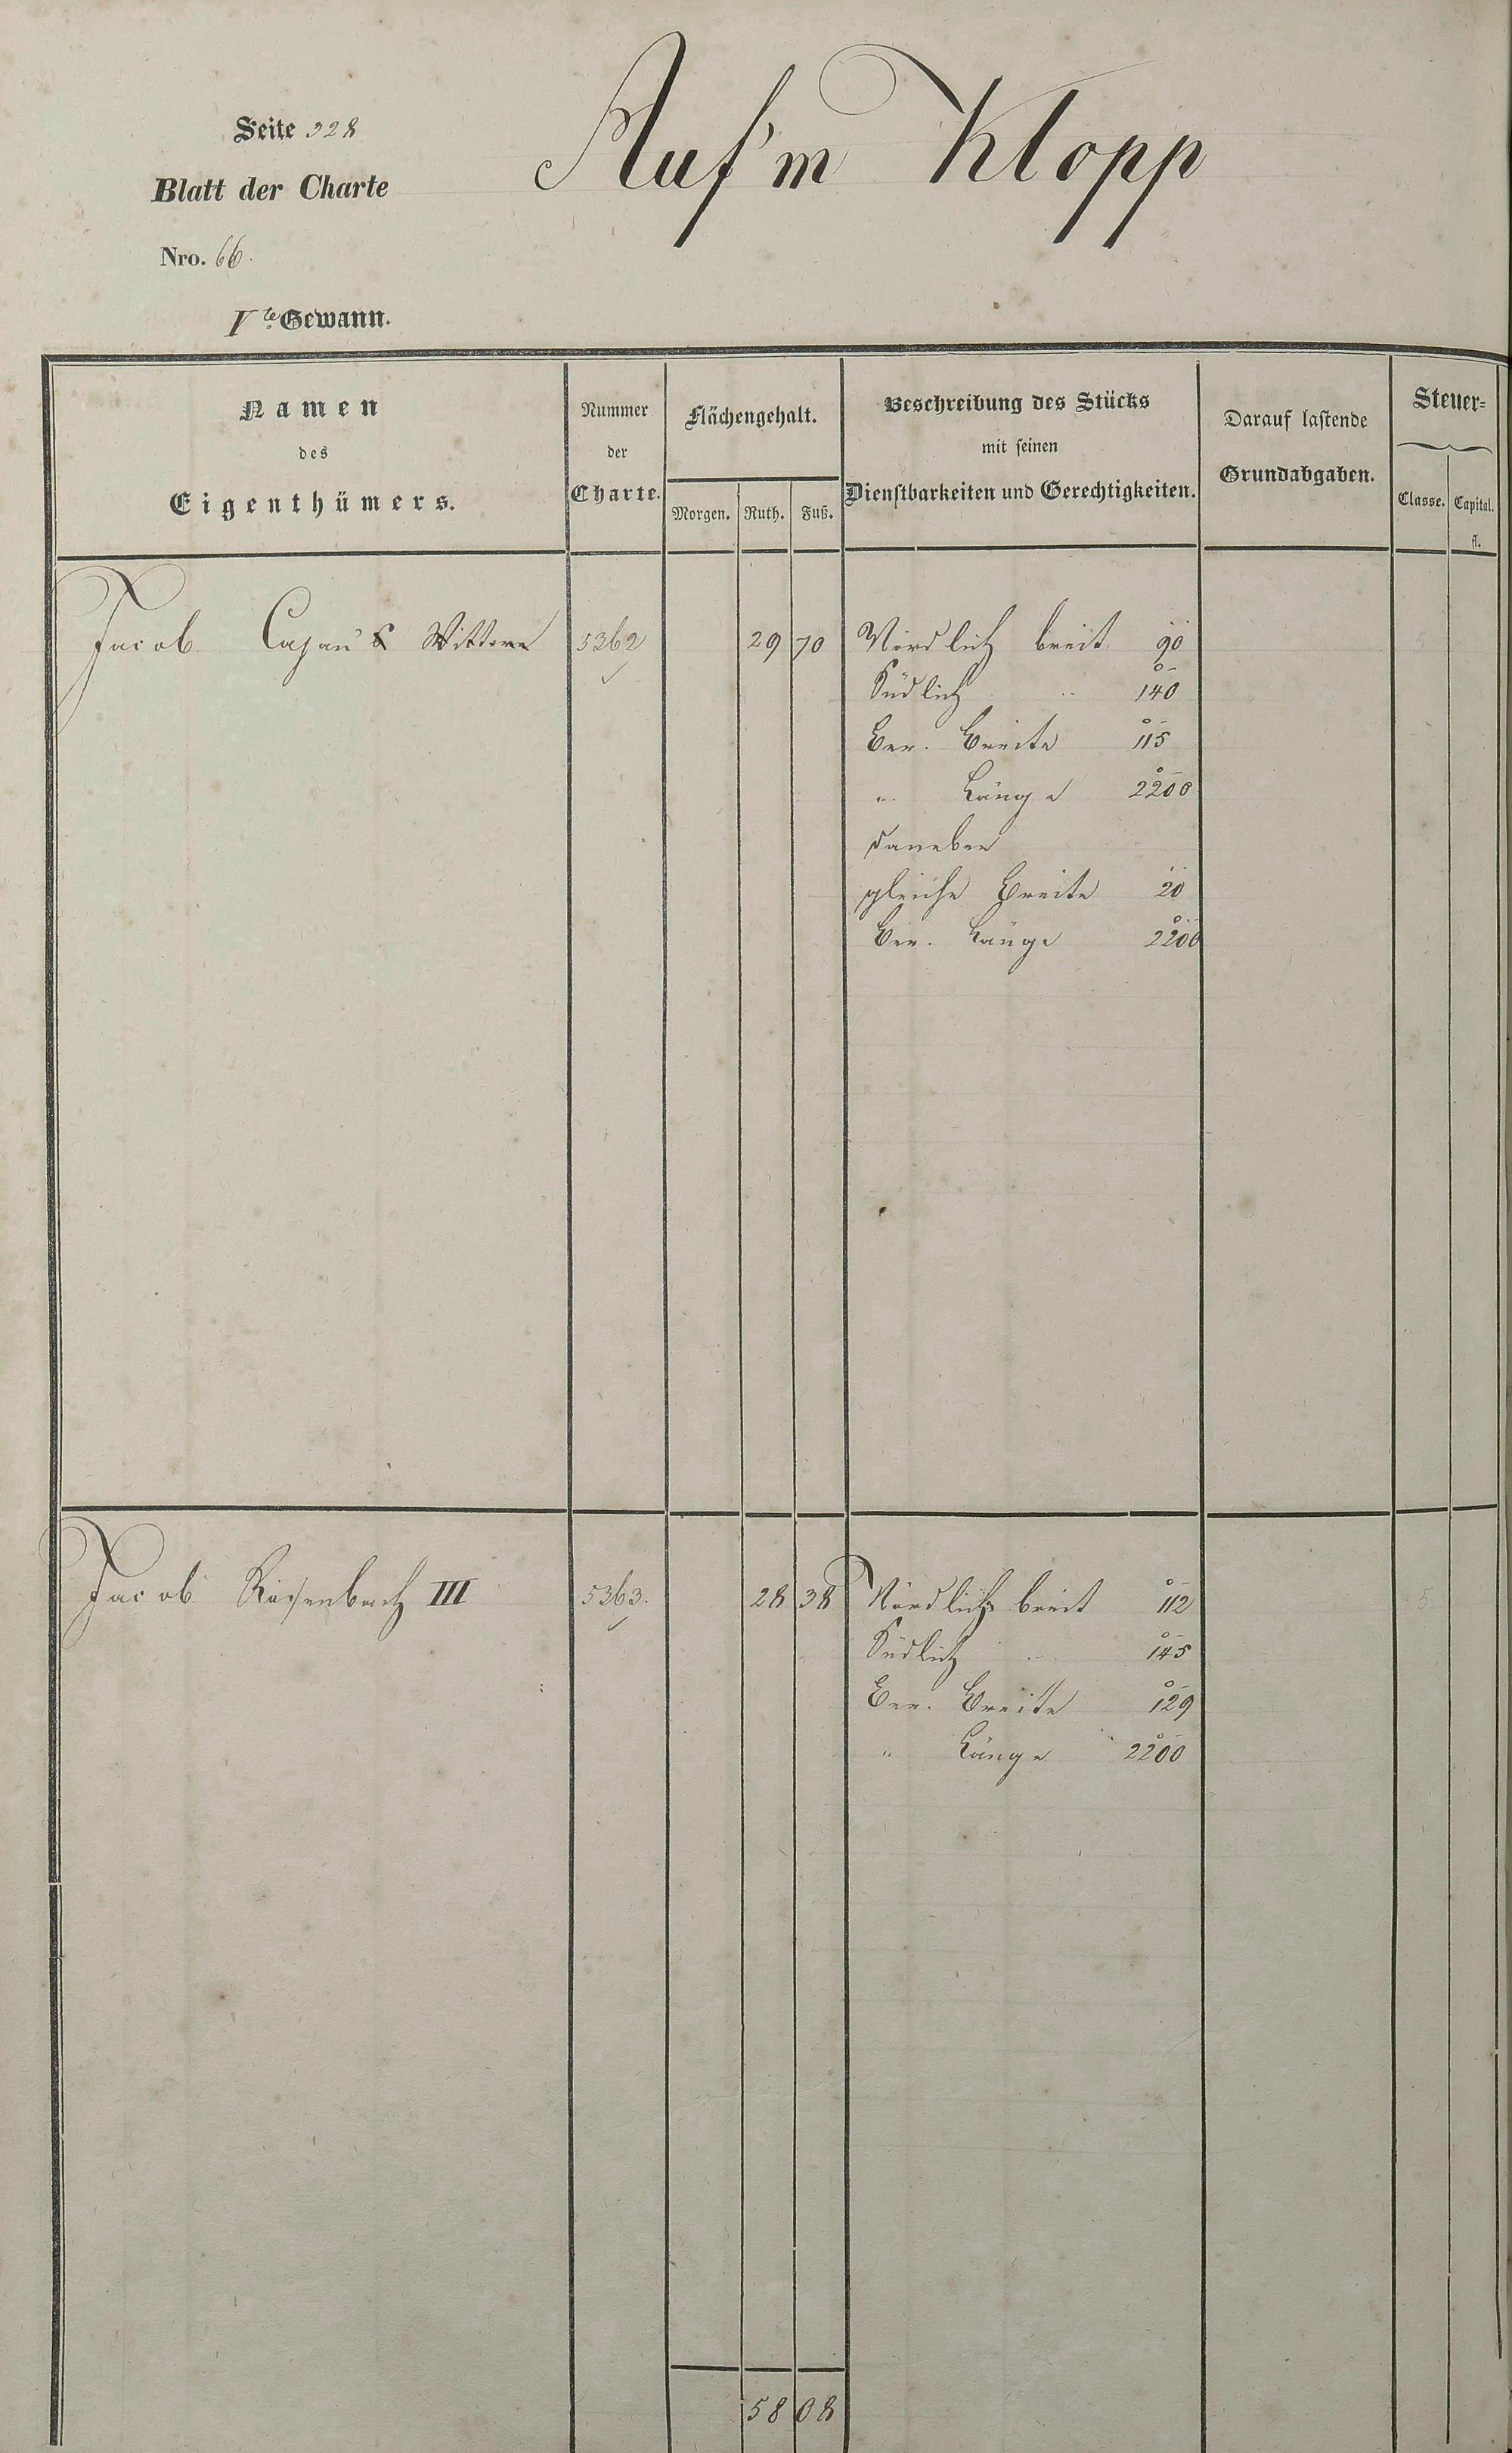 Auf'm Klopp
Seite 328
Blatt der Charte
Nro. 66.
Vte Gewann.
Namen
des
Eigenthümers.
Nummer
der
Charte.
Flächengehalt.
Morgen. Ruth. Fuß.
Beschreibung des Stücks
mit seinen
Dienstbarkeiten und Gerechtigkeiten.
Darauf lastende
Grundabgaben.
Steuer=
Classe. Capital.
fl.
Jacob Wittwe 5362 29 70 Nördlich breit 90 5
Südlich " 140
Ber. Breite 115
" Länge 2200
daneben
gleiche Breite 20
Ber. Länge 2200
Jacob III 5363. 28 38 Nördlich breit 112 5
Südlich " 145
Ber. Breite 129
" Länge 2200
58 08